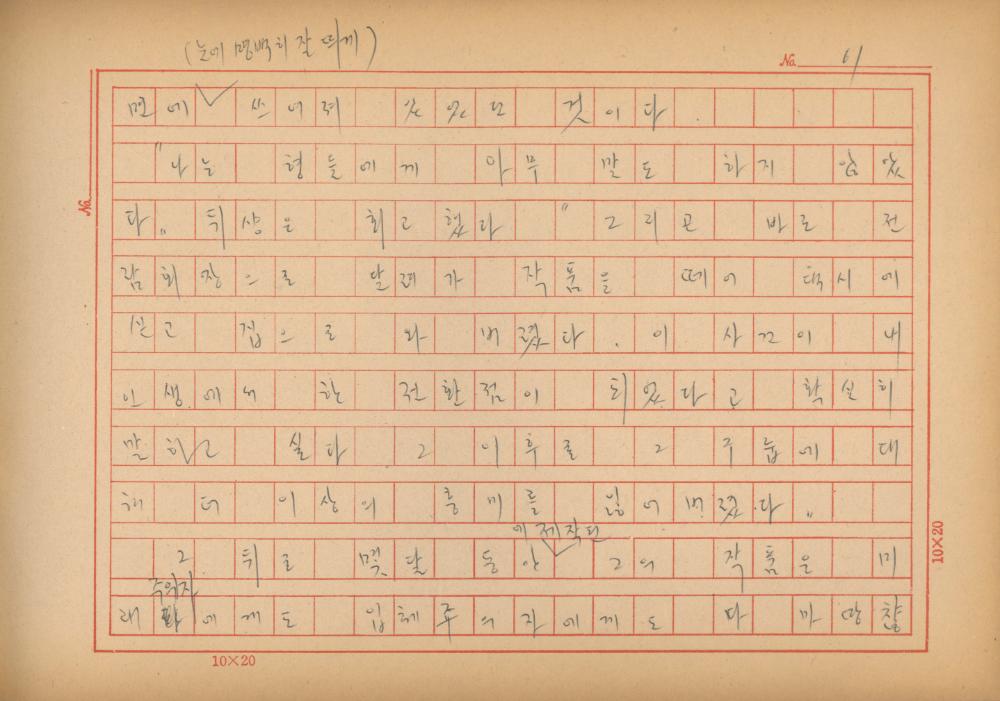 (눈에 명백히 잘 띄게)
No. 61
면에 쓰여져 있었던 것이다.
"나는 형들에게 아무 말도 하지 않았
다" 뒤샹은 회고했다 "그리곤 바로 전
람회장으로 달려가 작품을 떼어 택시에
싣고 집으로 와 버렸다. 이 사건이 내
인생에서 한 전환점이 되었다고 확실히
말하고 싶다 그 이후로 그 구룹에 대
해 더 이상의 흥미를 잃어버렸다"
에 제작된
그 뒤로 몇달 동안 그의 작품은 미
주의자
래파에게도 입체주의자에게도 다 마땅찮
No.
10×20
10×20